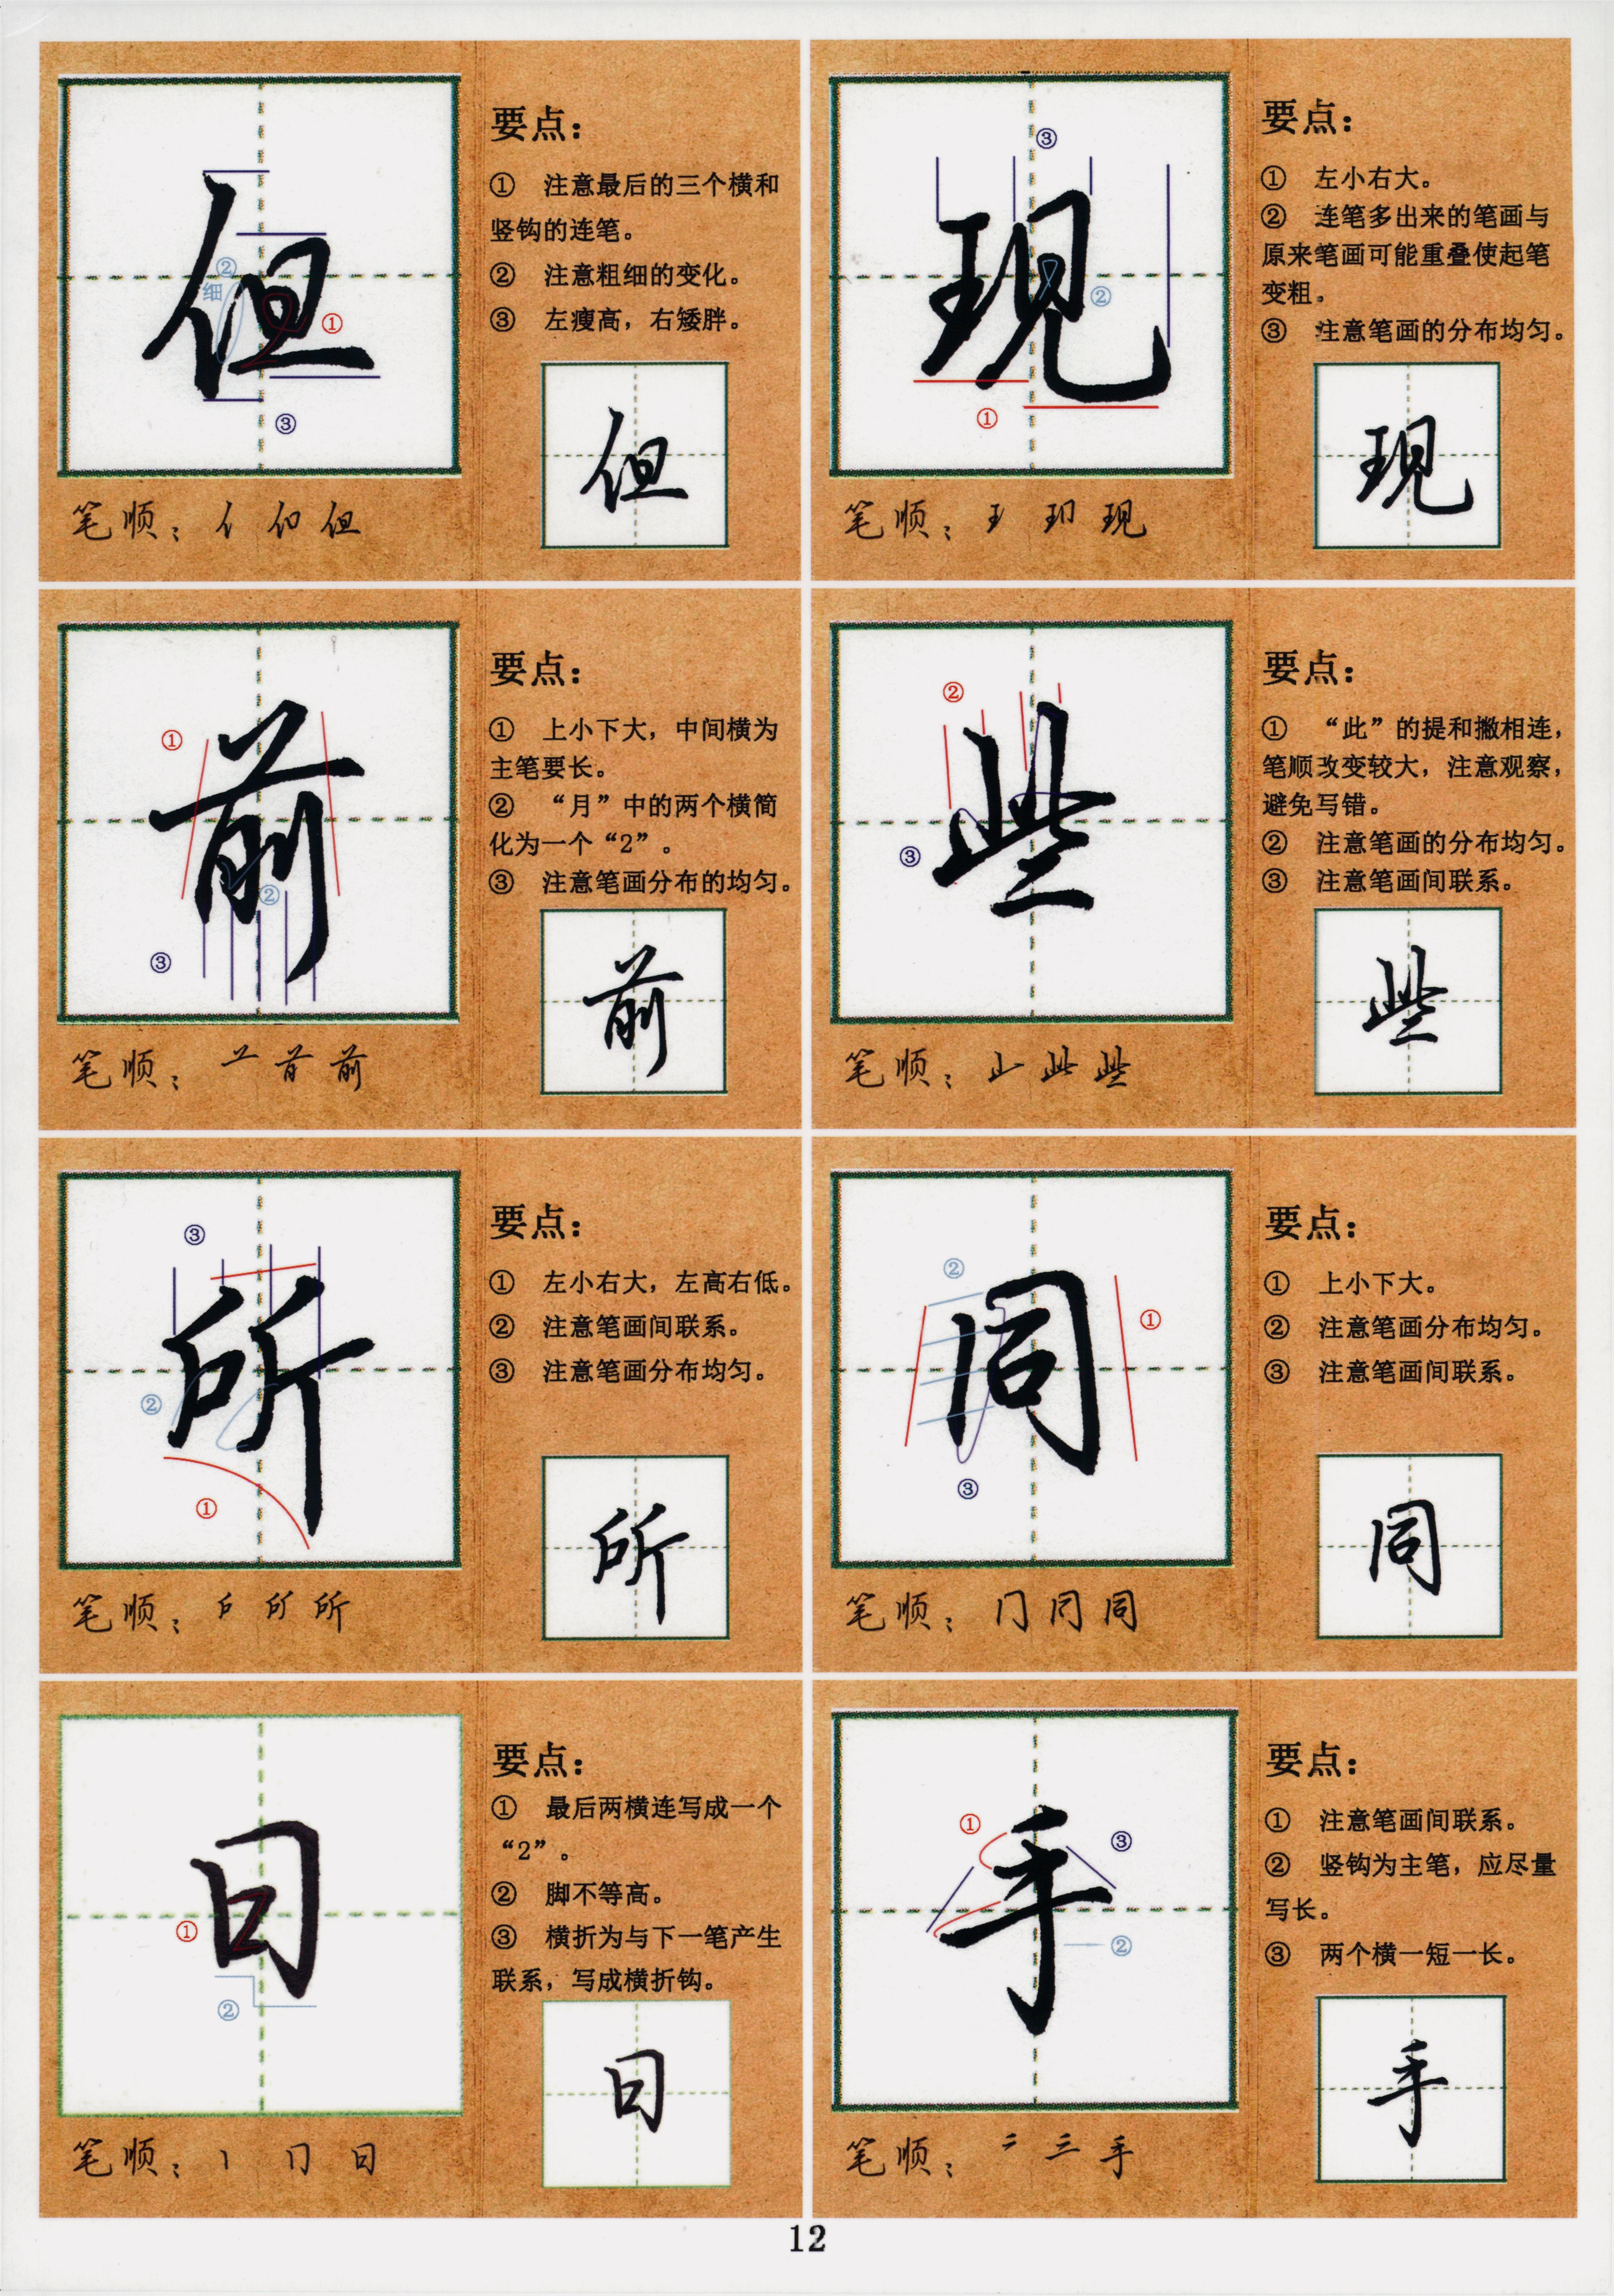 但
②
细
①
③
笔顺：亻 们 但
要点：
① 注意最后的三个横和
竖钩的连笔。
② 注意粗细的变化。
③ 左瘦高，右矮胖。
但
现
③
②
①
笔顺：王 玥 现
要点：
① 左小右大。
② 连笔多出来的笔画与
原来笔画可能重叠使起笔
变粗。
③ 注意笔画的分布均匀。
现
前
①
②
③
笔顺：䒑 前
要点：
① 上小下大，中间横为
主笔要长。
② “月”中的两个横简
化为一个“2”。
③ 注意笔画分布的均匀。
前
些
②
③
笔顺：止 此 些
要点：
① “此”的提和撇相连，
笔顺改变较大，注意观察，
避免写错。
② 注意笔画的分布均匀。
③ 注意笔画间联系。
些
所
③
②
①
笔顺：戶 所 所
要点：
① 左小右大，左高右低。
② 注意笔画间联系。
③ 注意笔画分布均匀。
所
同
②
①
③
笔顺：门 冋 同
要点：
① 上小下大。
② 注意笔画分布均匀。
③ 注意笔画间联系。
同
日
①
②
笔顺：丨 冂 日
要点：
① 最后两横连写成一个
“2”。
② 脚不等高。
③ 横折为与下一笔产生
联系，写成横折钩。
日
手
①
③
②
笔顺：二 三 手
要点：
① 注意笔画间联系。
② 竖钩为主笔，应尽量
写长。
③ 两个横一短一长。
手
12